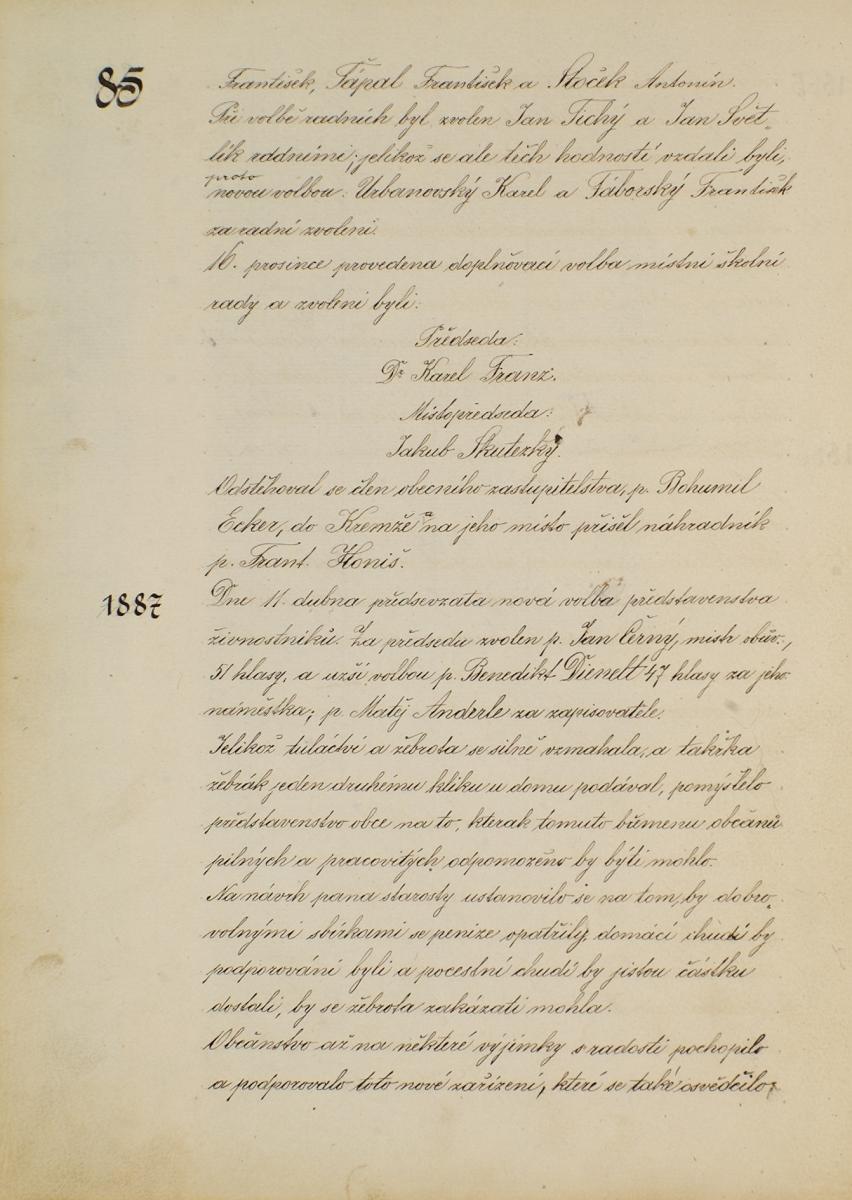 85
František, Fápal František a Stoček Antonín.
Při volbě radních byl zvolen Jan Tichý a Jan Svět-
lík raddními; jelikož se ale těch hodností vzdali byli,
proto
novou volbou: Urbanovský Karel a Táborský František
za radní zvoleni.
16. prosince provedena doplňovací volba místní školní
rady a zvoleni byli:
Předseda:
Dr Karel Franz.
Místopředseda:
Jakub Skutezký.
Odstěhoval se člen obecního zastupitelstva, p. Bohumil
Ecker, do Kremže a na jeho místo přišel náhradník
p. Frant. Honiš.
1887
Dne 11. dubna předsevzata nová volba představenstva
živnostníků. Za předsedu zvolen p. Jan Černý, mistr obuv.,
51 hlasy, a užší volbou p. Benedikt Dienelt 47 hlasy za jeho
náměstka; p. Matěj Anderle za zapisovatele.
Jelikož tuláctví a žebrota se silně vzmahala, a takřka
žebrák jeden druhému kliku u domu podával, pomýšlelo
představenstvo obce na to, kterak tomuto břmenu občanů
pilných a pracovitých odpomoženo by býti mohlo.
Na návrh pana starosty ustanovilo se na tom, by dobro-
volnými sbírkami se peníze opatřily, domácí chudí by
podporováni byli a pocestní chudí by jistou částku
dostali, by se žebrota zakázati mohla.
Občanstvo až na některé výjimky s radostí pochopilo
a podporovalo toto nové zařízení, které se také osvědčilo,